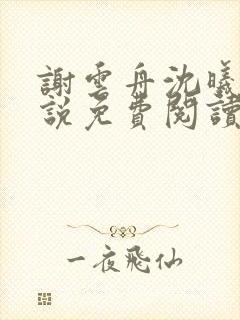 謝雲舟沈曦
說免費閱讀
一夜飛仙